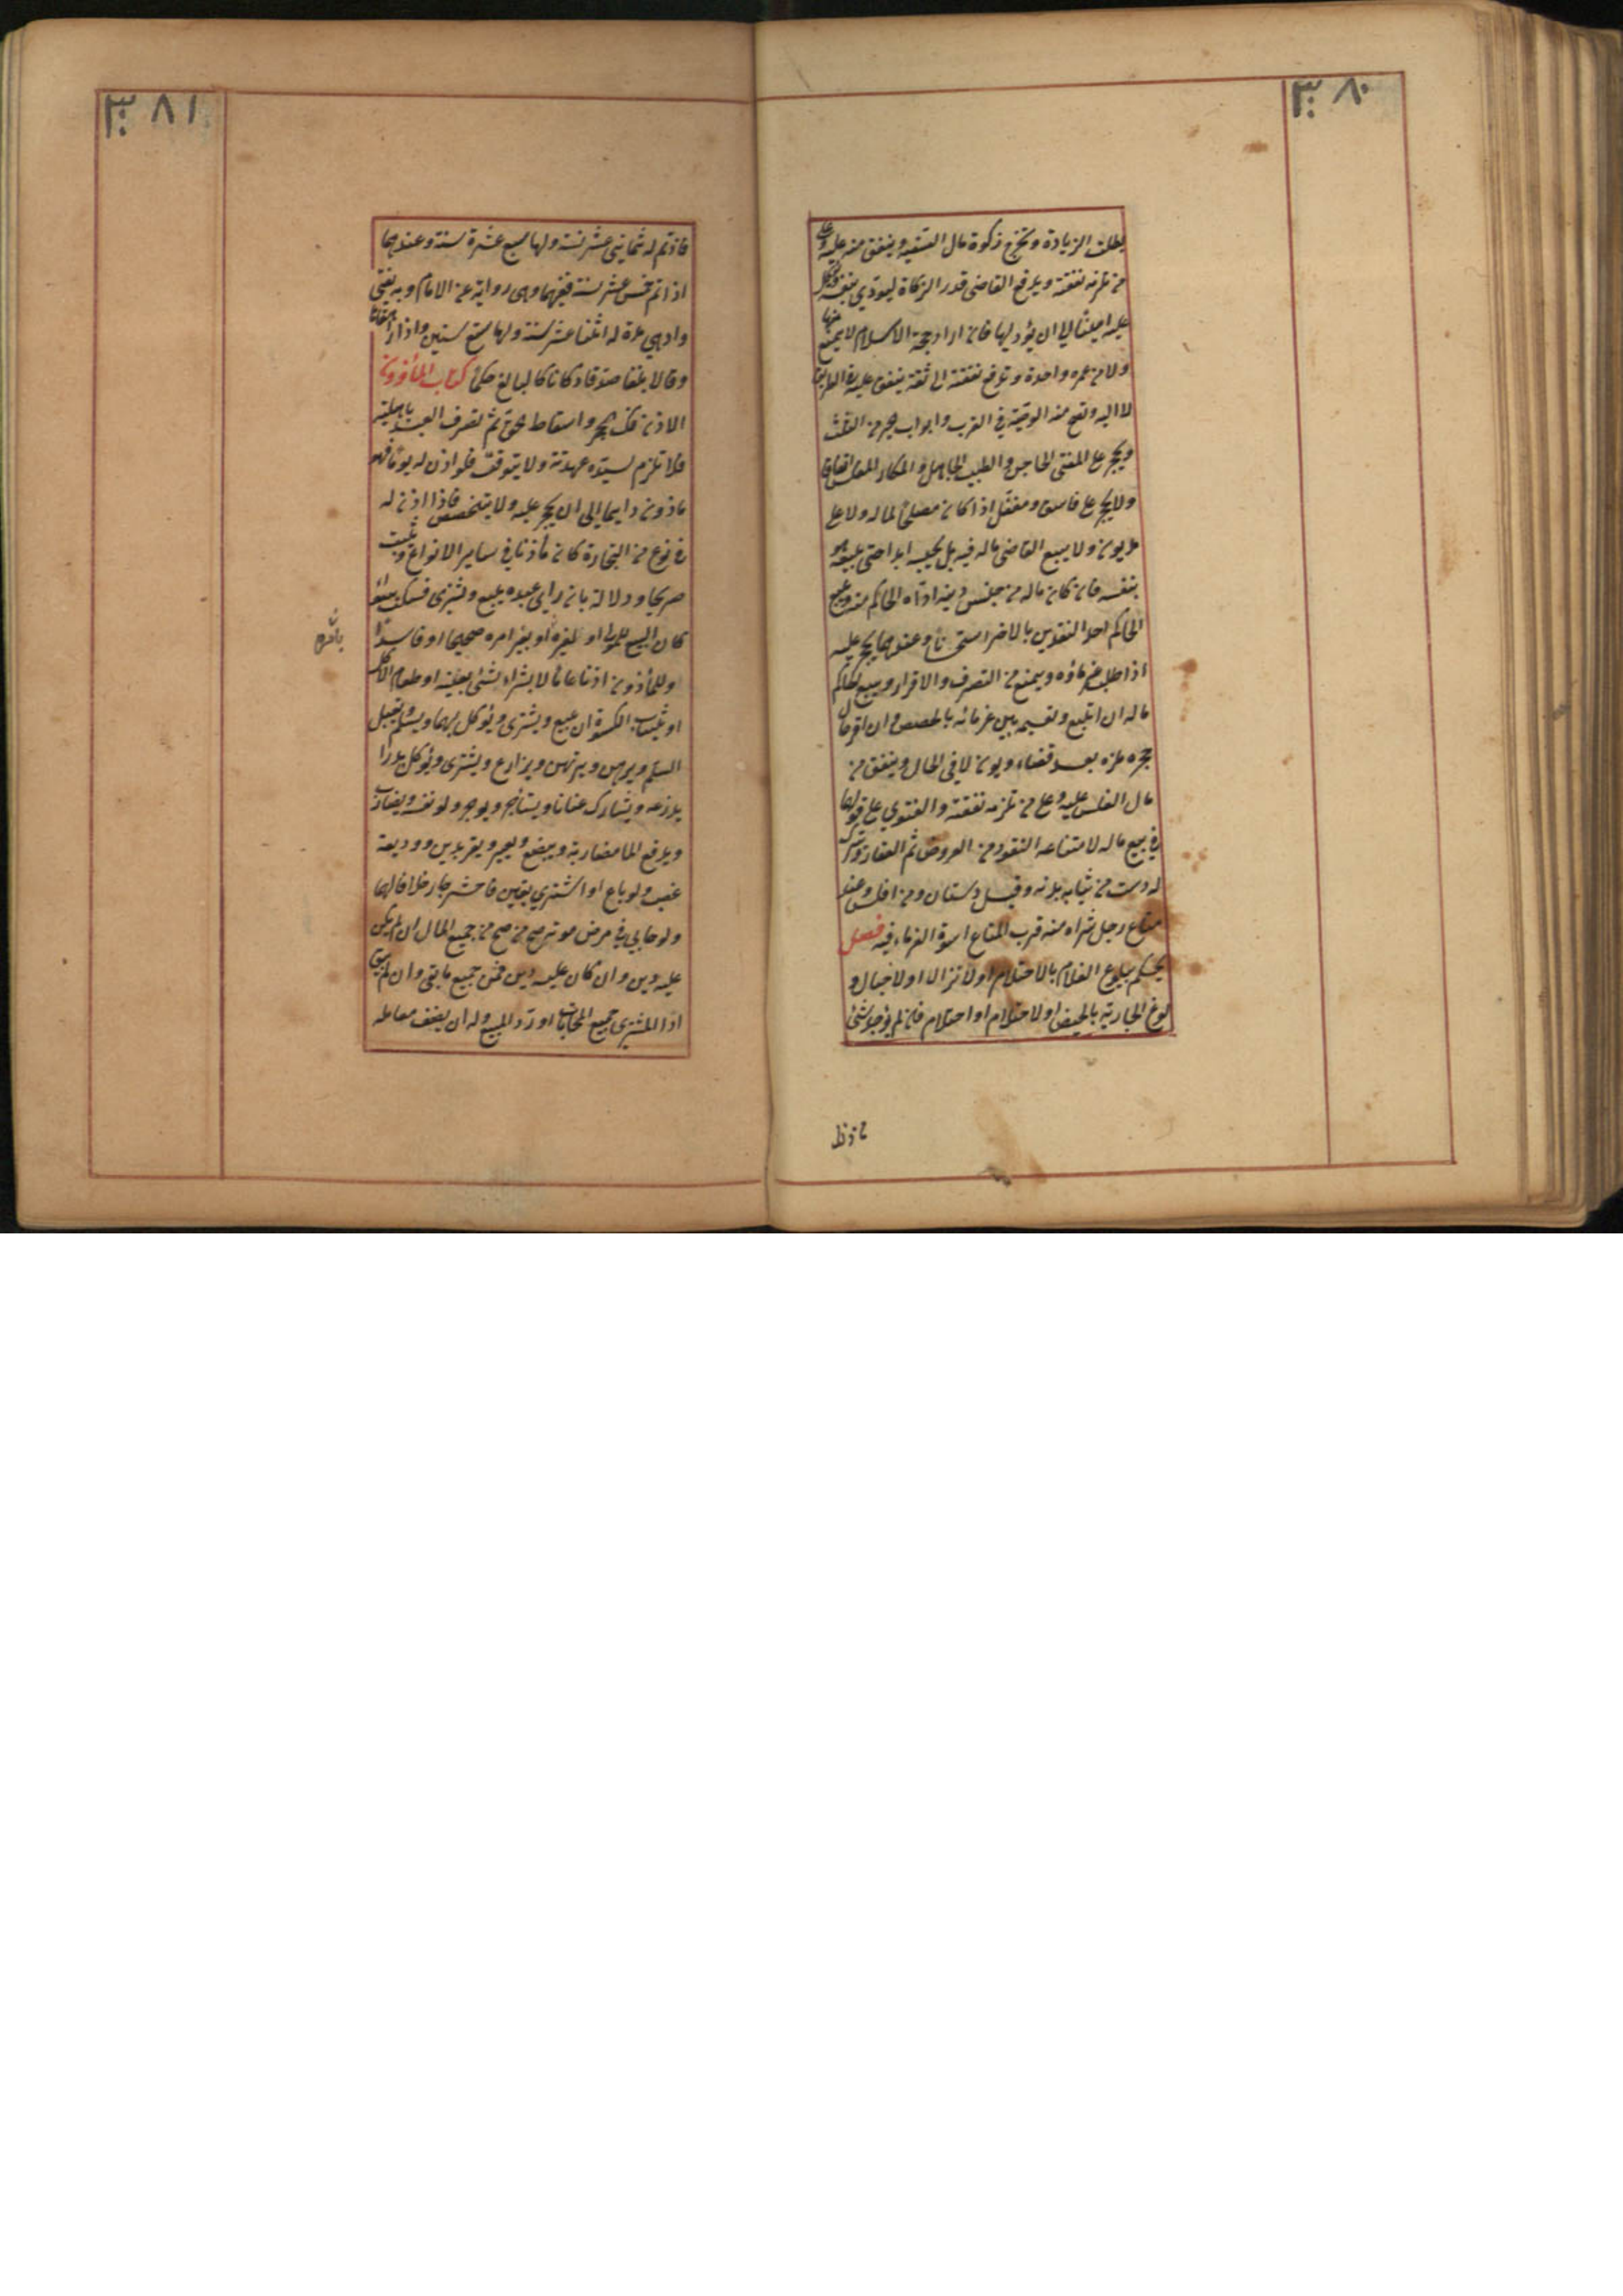 ٣٨٠
يطلب الزيادة ويخرج زكوة مال السفيه وينفق منه عليه وعلى
من تلزمه نفقته ويدفع القاضي قدر الزكاة ليؤدي بنفسه ويوكل
عليه امينا الى ان يؤديها فان اراد حجة الاسلام لا يمنع منها
ولا من عمرة واحدة وتدفع نفقته الى ثقة ينفق عليه في الطريق
لا اليه وتصح منه الوصية في القرب وابواب الخير من الثلث
ويحجر على المفتي الماجن والطبيب الجاهل والمكاري المفلس اتفاقا
ولا يحجر على فاسق ومغفل اذا كان مصلحا لماله ولا على
مديون ولا يبيع القاضي ماله فيه بل يحبسه ابدا حتى يبيعه هو
بنفسه فان كان ماله من جنس دينه اداه الحاكم منه ويبيع
الحاكم احد النقدين بالاخر استحسانا وعندهما يحجر عليه
اذا طلب غرماؤه ويمنع من التصرف والاقرار ويبيع الحاكم
ماله ان امتنع ويقسمه بين غرمائه بالحصص وان اقر حال
حجره لزمه بعد قضاء ديونه لا في الحال وينفق من
مال المفلس عليه وعلى من تلزمه نفقته والفتوي على قولهما
في بيع ماله لامتناعه النقود ثم العروض ثم العقار ويترك
له دست من ثياب بدنه وقيل دستان ومن افلس وعنده
متاع رجل شراه منه فرب المتاع اسوة الغرماء فيه فصل
يحكم ببلوغ الغلام بالاحتلام او الانزال او الاحبال و
بلوغ الجارية بالحيض او الاحتلام او الحبل فان لم يوجد شئ
٣٨١
فاذا تم له ثماني عشر سنة ولها سبع عشرة سنة وعندهما
اذا تم خمس عشر سنة فيهما وهي رواية عن الامام وبه يفتى
وادنى مدة له اثنتا عشر سنة ولها تسع سنين واذا راهقا
وقالا بلغنا صدقا وكانا كالبالغ حكما كتاب المأذون
الاذن فك الحجر واسقاط الحق ثم تصرف العبد باهليته
فلا تلزم لسيده عهدته ولا يتوقف فلو اذن له يوما فهو
ماذون دايما الى ان يحجر عليه ولا يتخصص فاذا اذن له
في نوع من التجارة كان مأذونا في ساير الانواع ويثبت
صريحا ودلالة بان راى عبده يبيع ويشترى فسكت سواء
كان البيع للمولى او لغيره او بغير امره صحيحا او فاسدا
وللمأذون اذنا عاما لا بشراء شئ بعينه او طعام الاكل
او ثياب الكسوة ان يبيع ويشترى ويوكل بهما ويسلم ويقبل
السلم ويرهن ويرتهن ويزارع ويشترى
يزرعه ويشارك عنانا ويستأجر ويوجر ولو نفسه ويضارب
ويدفع المال مضاربة ويبضع ويعير ويقر بدين ووديعة
غصب ولو باع او اشترى بغبن فاحش جاز خلافا لهما
ولو حابي في مرض موته صح من جميع المال ان لم يكن
عليه دين وان كان عليه دين فمن جميع ما بقي وان لم يبق
ادا المشتري جميع المحاباة او رد المبيع وله ان يضيف معامله